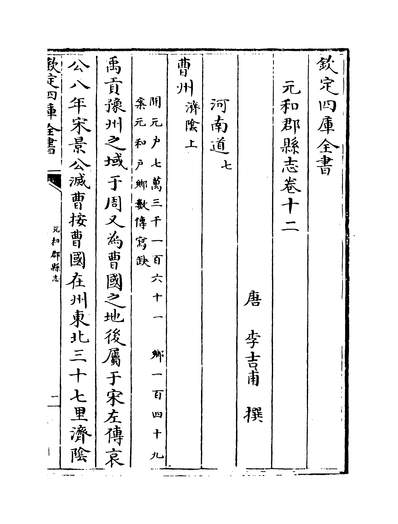 欽定四庫全書
元和郡縣志卷十二
唐 李吉甫 撰
河南道七
曹州 濟隂上
開元户七萬三千一百六十一 鄉一百四十九
案元和戶鄉數傳寫缺
禹貢豫州之域于周又為曹國之地後屬于宋左傳哀
公八年宋景公滅曹按曹國在州東北三十七里濟隂
欽定四庫全書
元和郡縣志
一